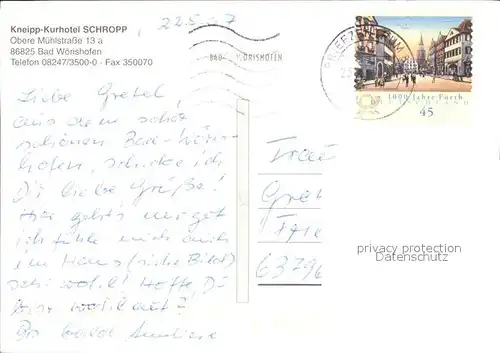 Kneipp-Kurhotel SCHROPP
Obere Mühlstraße 13 a
86825 Bad Wörishofen
Telefon 08247/3500-0 · Fax 350070
22.5.07
BAD WÖRISHOFEN
BRIEFZENTRUM
1000 Jahre Fürth
DEUTSCHLAND
45
Liebe Gretel,
aus dem sehr
schönen Bad-Wöris-
hofen, schicke ich
Dir liebe Grüße!
Hier geht's mir gut
ich fühle mich auch
im Haus (siehe Bild)
sehr wohl! Hoffe, Du
wohlauf?
Bis bald Anneliese
Frau
Gre
63796
privacy protection
Datenschutz